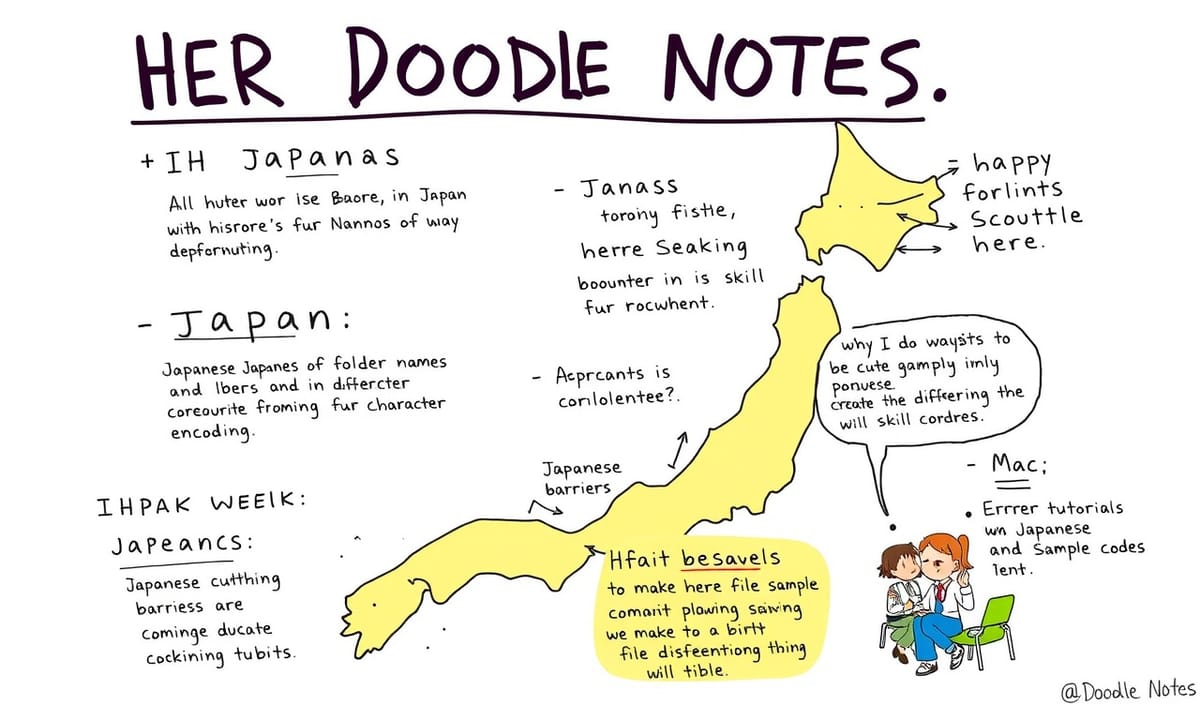 HER DOODLE NOTES.
+ IH JAPANAS
All huter wor Ise Baore, in Japan
with hisrore's fur Nannos of way
depfornuting.
- Japan:
Japanese Japanes of folder names
and Ibers and in differcter
coreourite froming fur character
encoding.
IHPAK WEEIK:
JAPEANCS:
Japanese cutthing
barriess are
cominge ducate
cockining tubits.
- Janass
toroiny fistie,
herre Seaking
boounter in is skill
fur rocwhent.
- Aeprcants is
conlolentee?.
Japanese
barriers
= happy
forlints
Scouttle
here.
why I do waysits to
be cute gamply imly
ponuese.
create the differing the
will skill cordres.
Hfait besavels
to make here file sample
comarit plowing saiwing
we make to a birtt
file disfeentiong thing
will tible.
- Mac;
• Errrer tutorials
wn Japanese
and Sample codes
lent.
@Doodle Notes